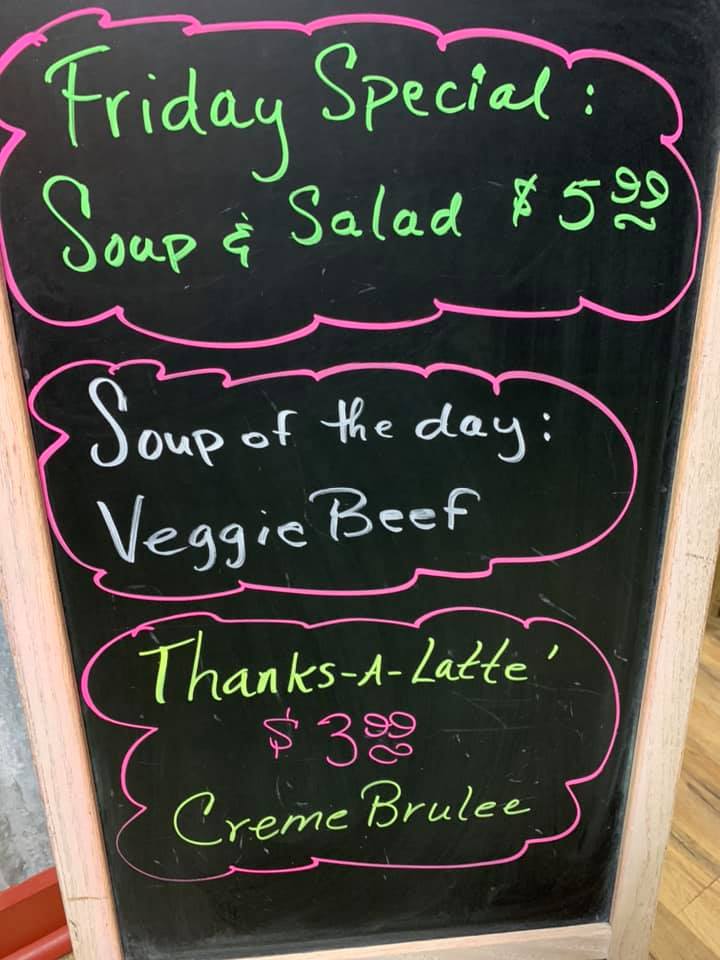 Friday Special:
Soup & Salad $5.99
Soup of the day:
Veggie Beef
Thanks-A-Latte'
$3.99
Creme Brulee